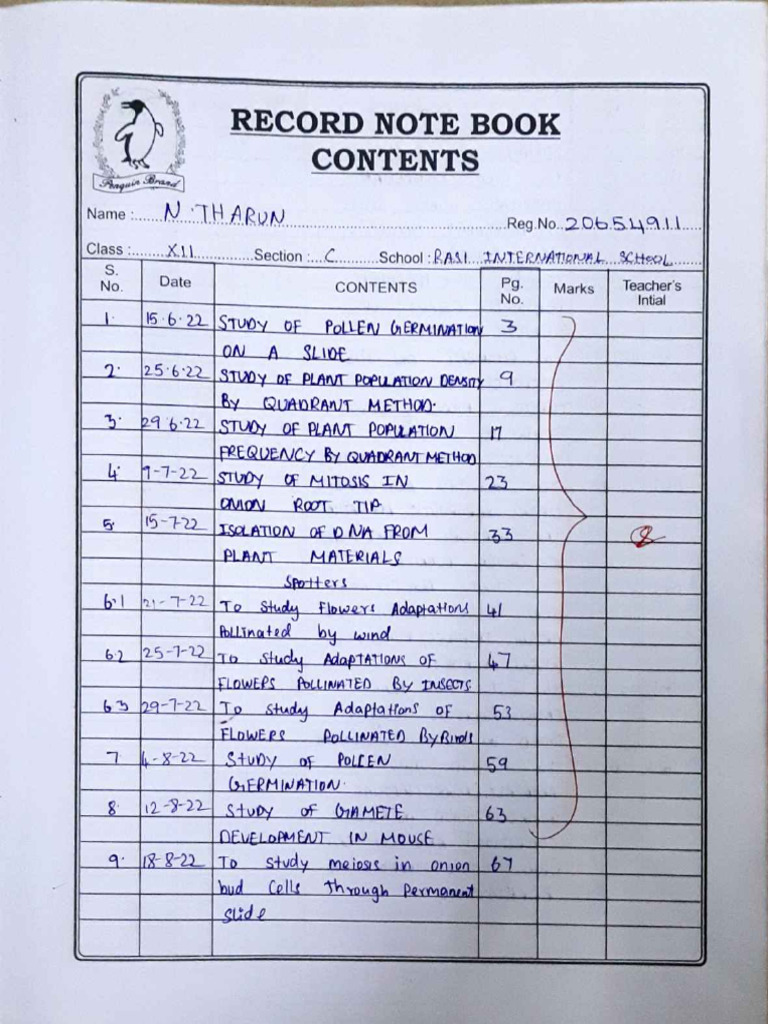 RECORD NOTE BOOK
CONTENTS
Penguin Brand
Name : N. THARUN Reg.No. 20654911
Class : XII Section : C School : RASI INTERNATIONAL SCHOOL
S. No. Date CONTENTS Pg. No. Marks Teacher's Intial
1. 15.6.22 STUDY OF POLLEN GERMINATION 3
ON A SLIDE
2. 25.6.22 STUDY OF PLANT POPULATION DENSITY 9
BY QUADRANT METHOD.
3. 29.6.22 STUDY OF PLANT POPULATION 17
FREQUENCY BY QUADRANT METHOD
4. 9-7-22 STUDY OF MITOSIS IN 23
ONION ROOT TIP
5. 15-7-22 ISOLATION OF DNA FROM 33
PLANT MATERIALS
Spotters
6.1 21-7-22 To Study Flowers Adaptations 41
Pollinated by wind
6.2 25-7-22 To Study ADAPTATIONS OF 47
FLOWERS POLLINATED BY INSECTS
6.3 29-7-22 To Study Adaptations OF 53
FLOWERS POLLINATED By Birds
7. 4-8-22 STUDY OF POLLEN 59
GERMINATION.
8. 12-8-22 STUDY OF GAMETE 63
DEVELOPMENT IN MOUSE
9. 18-8-22 To study meiosis in onion 67
bud cells through permanent
slide